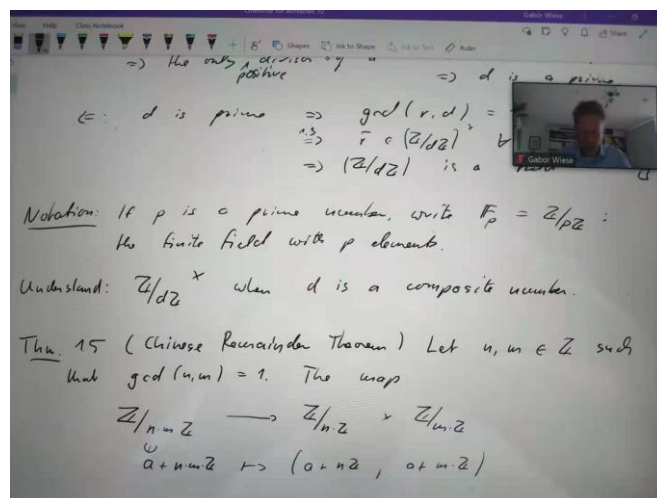 OneNote for Windows 10
Gabor Wiese
View Help Class Notebook
Shapes Ink to Shape Ink to Text Ruler
Share
=> the only divisor of a
positive
=> d is a prime
<=: d is prime => gcd(r,d) =
1.3 => r̄ ∈ (ℤ/dℤ)^×
=> (ℤ/dℤ) is a
Gabor Wiese
Notation: If p is a prime number, write 𝔽_p = ℤ/pℤ :
the finite field with p elements.
Understand: ℤ/dℤ^× when d is a composite number.
Thm. 15 (Chinese Remainder Theorem) Let n, m ∈ ℤ such
that gcd(n,m) = 1. The map
ℤ/n·mℤ ⟶ ℤ/n·ℤ × ℤ/m·ℤ
a + n·m·ℤ ↦ (a + nℤ, a + m·ℤ)